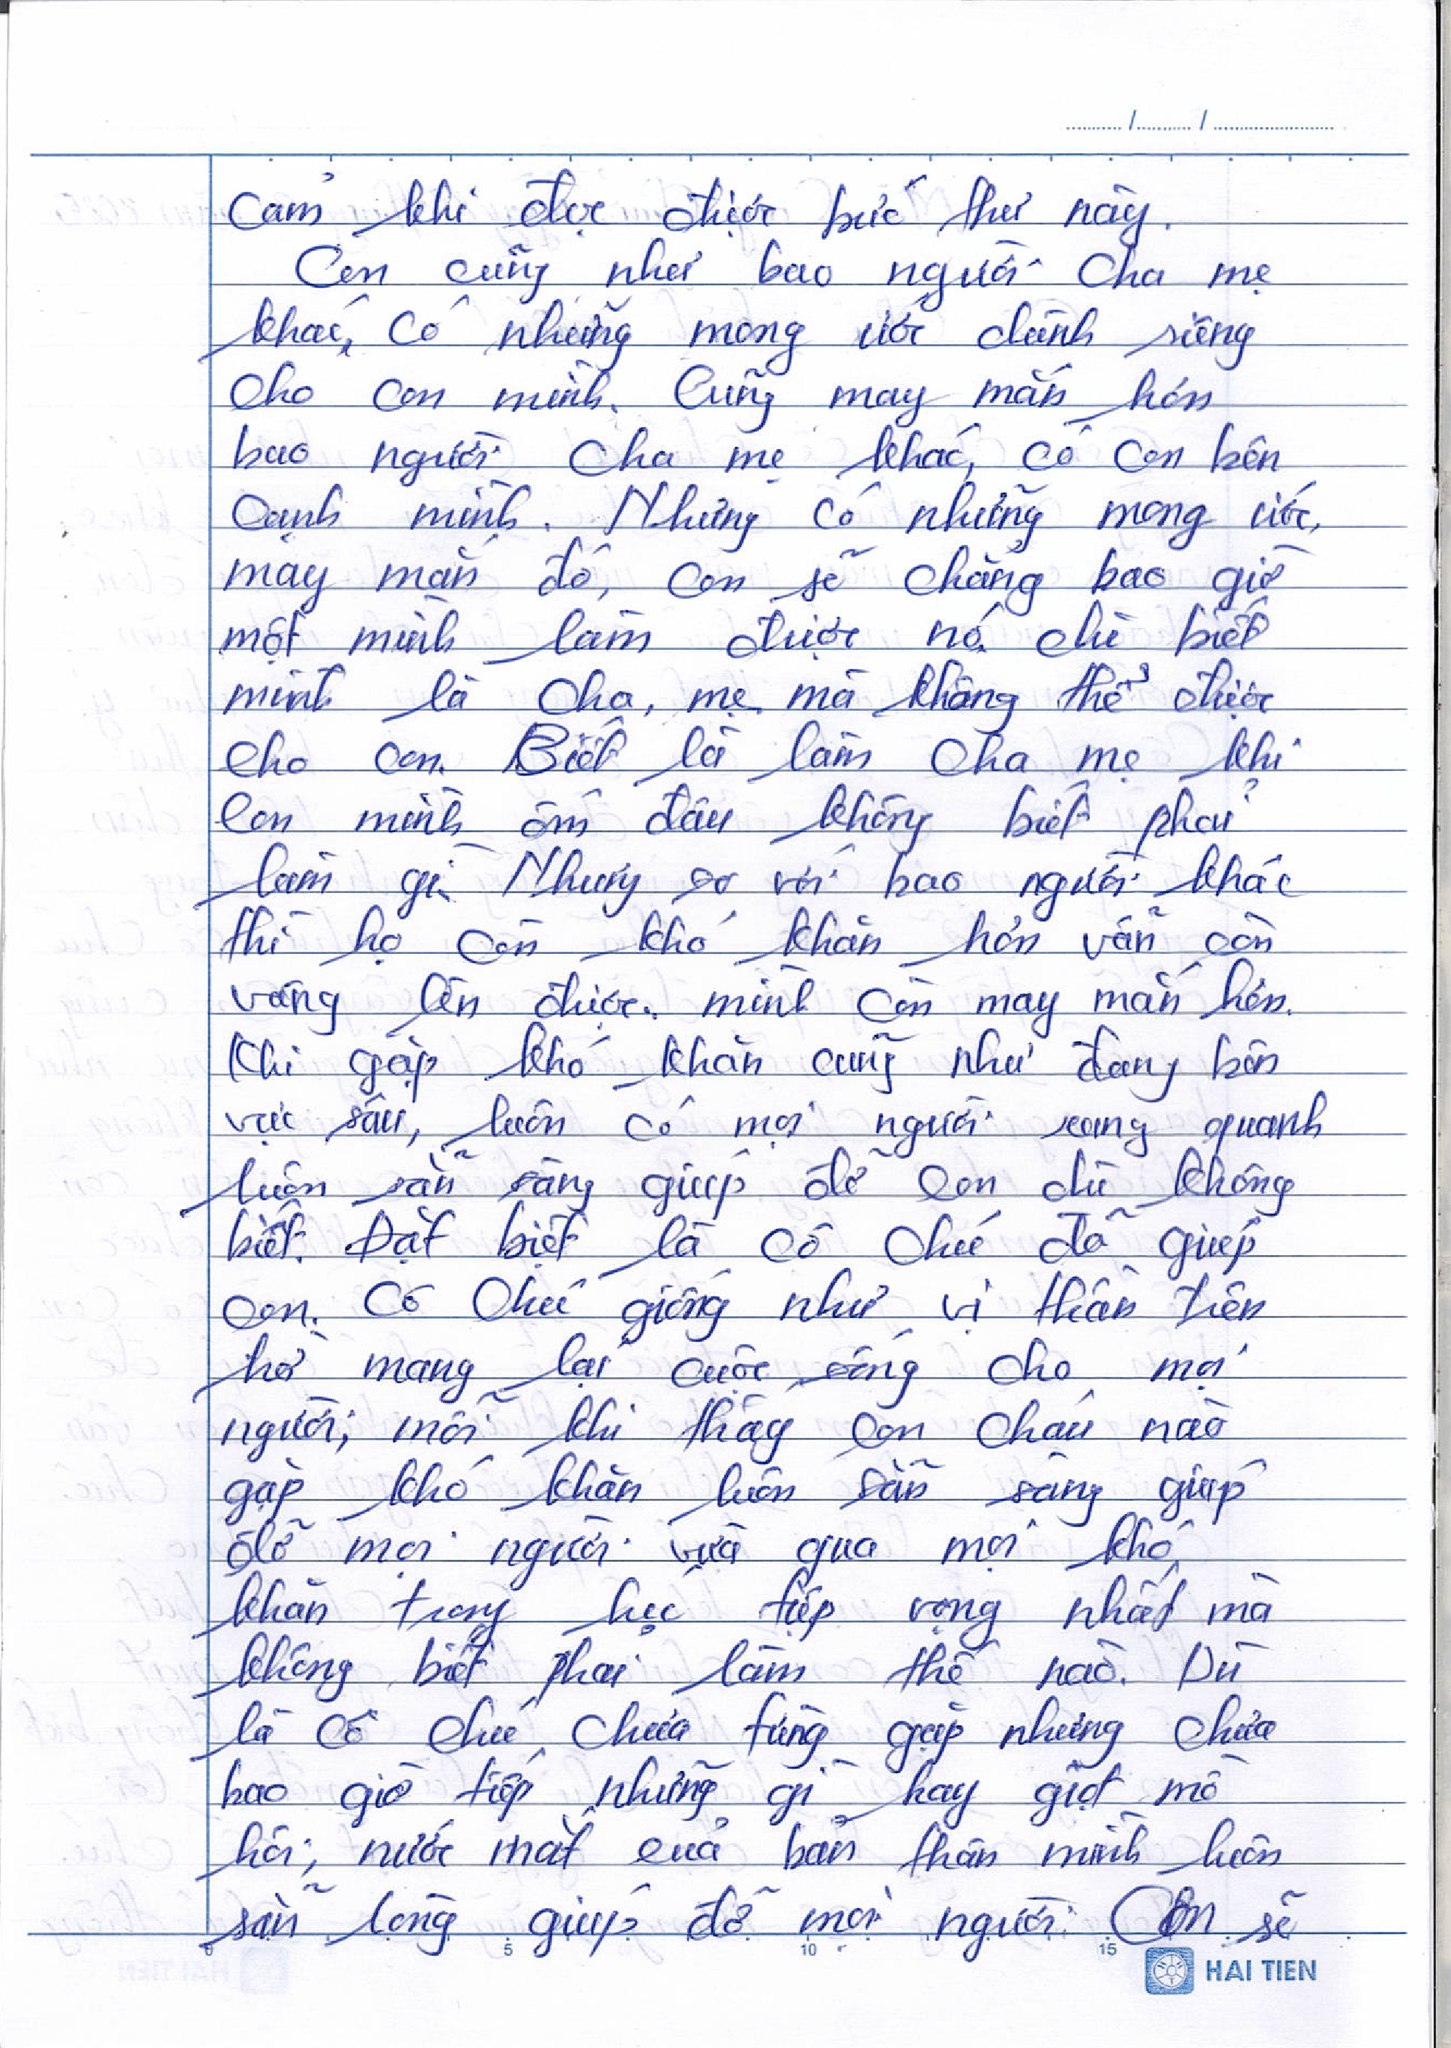 cảm khi đọc được bức thư này.
Con cũng như bao người cha mẹ
khác, có những mong ước dành riêng
cho con mình. Cũng may mắn hơn
bao người cha mẹ khác, có con bên
cạnh mình. Nhưng có những mong ước,
may mắn đó, con sẽ chẳng bao giờ
một mình làm được nó. chỉ biết
mình là cha, mẹ mà không thể được
cho con. Biết là làm cha mẹ khi
con mình ốm đau không biết phải
làm gì. Nhưng so với bao người khác
thì họ còn khó khăn hơn vẫn còn
vững lên được. mình còn may mắn hơn.
Khi gặp khó khăn cũng như đang bên
vực sâu, luôn có mọi người xung quanh
luôn sẵn sàng giúp đỡ con dù không
biết. Đặt biệt là cô chú đã giúp
con. Cô Chú giống như vị thần tiên
hở mang lại cuộc sống cho mọi
người, mỗi khi thấy con cháu nào
gặp khó khăn luôn sẵn sàng giúp
đỡ mọi người vựa qua mọi khó
khăn trong học tiếp vọng nhất mà
không biết phải làm thế nào. Dù
là cô chú chưa từng gặp nhưng chưa
bao giờ tiếp những gì hay giọt mồ
hôi, nước mắt của bản thân mình luôn
sẵn lòng giúp đỡ mọi người. Con sẽ
0 5 10 15
HAI TIEN